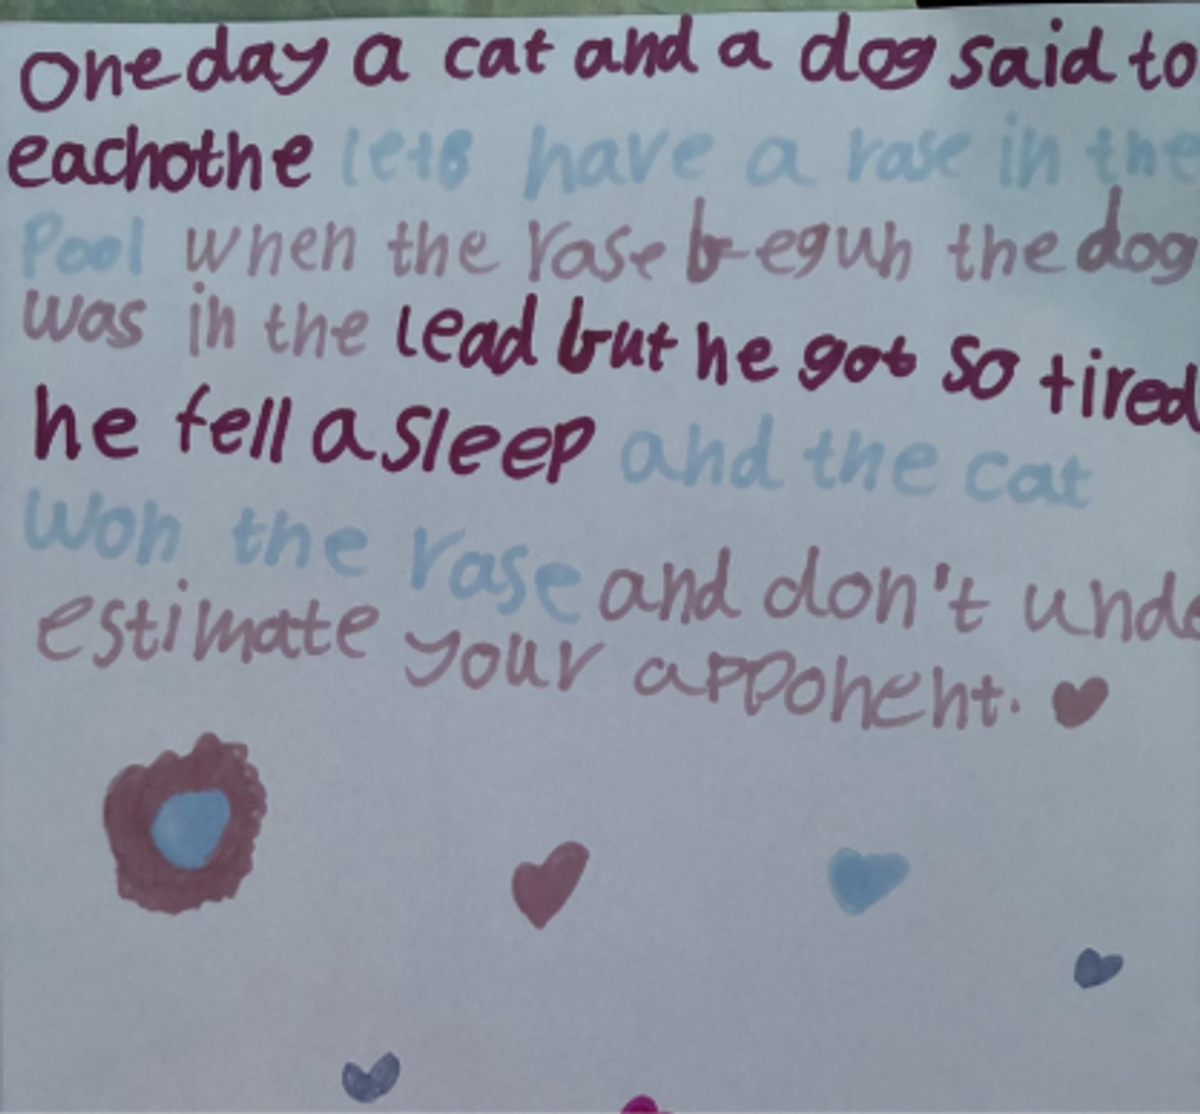 One day a cat and a dog said to
eachothe lets have a rase in the
Pool when the rase begun the dog
was in the lead but he got so tired
he fell asleep and the cat
won the rase and don't unde
estimate your apponent.